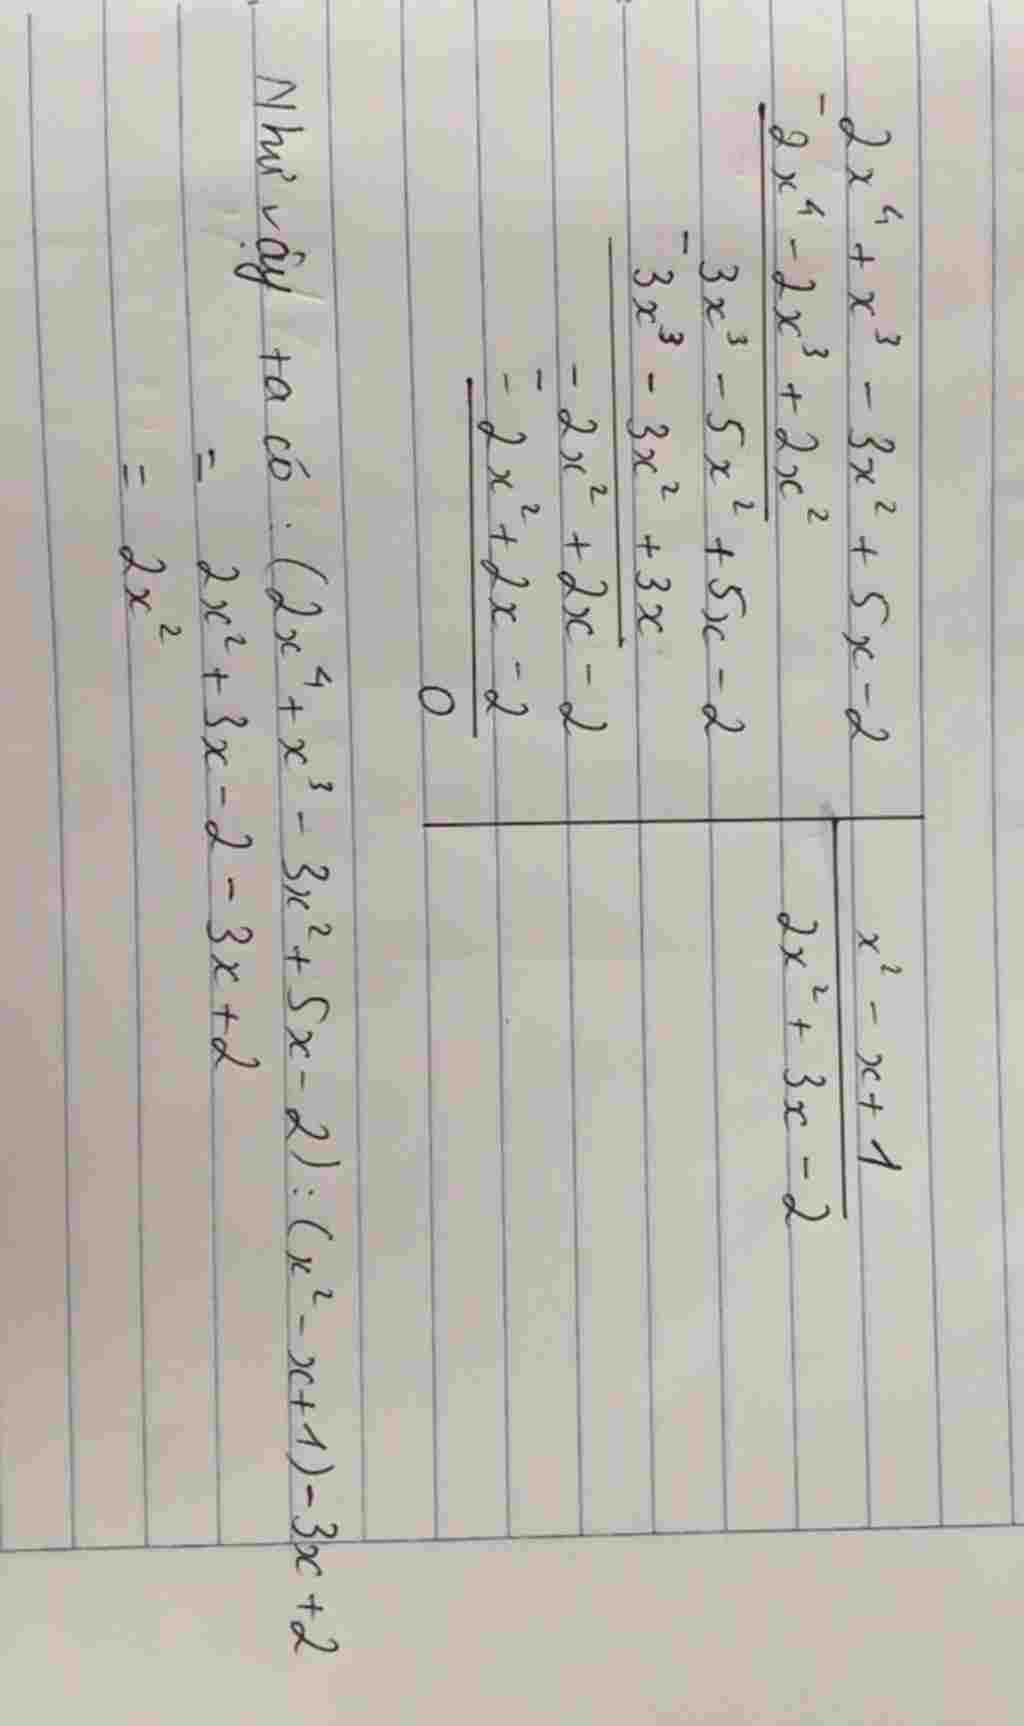 2x⁴ + x³ - 3x² + 5x - 2 | x² - x + 1
- 2x⁴ - 2x³ + 2x² | 2x² + 3x - 2
3x³ - 5x² + 5x - 2
- 3x³ - 3x² + 3x
- 2x² + 2x - 2
- - 2x² + 2x - 2
0
Như vậy ta có : (2x⁴ + x³ - 3x² + 5x - 2) : (x² - x + 1) - 3x + 2
= 2x² + 3x - 2 - 3x + 2
= 2x²